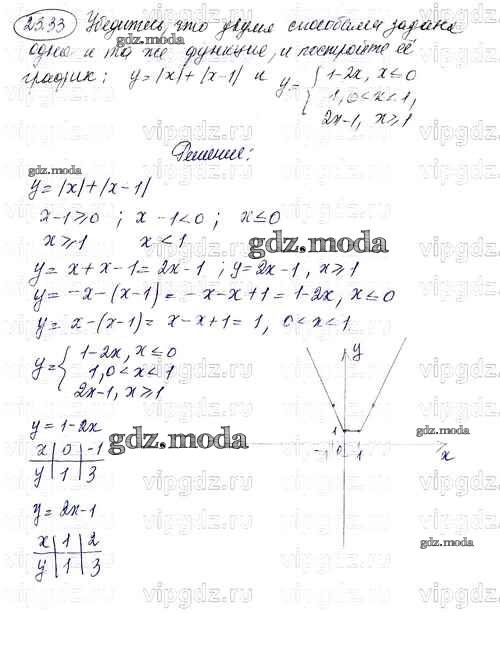 25.33 Убедитесь, что двумя способами задана
одна и та же функция, и постройте её
график: y=|x|+|x-1| и y={ 1-2x, x≤0
1, 0<x<1,
2x-1, x≥1
Решение:
gdz.moda
y=|x|+|x-1|
x-1≥0 ; x-1<0 ; x≤0
x≥1 x<1
gdz.moda
y= x+x-1= 2x-1 ; y=2x-1, x≥1
y= -x-(x-1)= -x-x+1= 1-2x, x≤0
y= x-(x-1)= x-x+1= 1, 0<x<1
y={ 1-2x, x≤0
1, 0<x<1
2x-1, x≥1
y
1
-1 0 1 x
y=1-2x
gdz.moda
x | 0 | -1
y | 1 | 3
gdz.moda
y= 2x-1
x | 1 | 2
y | 1 | 3
gdz.moda
vipgdz.ru